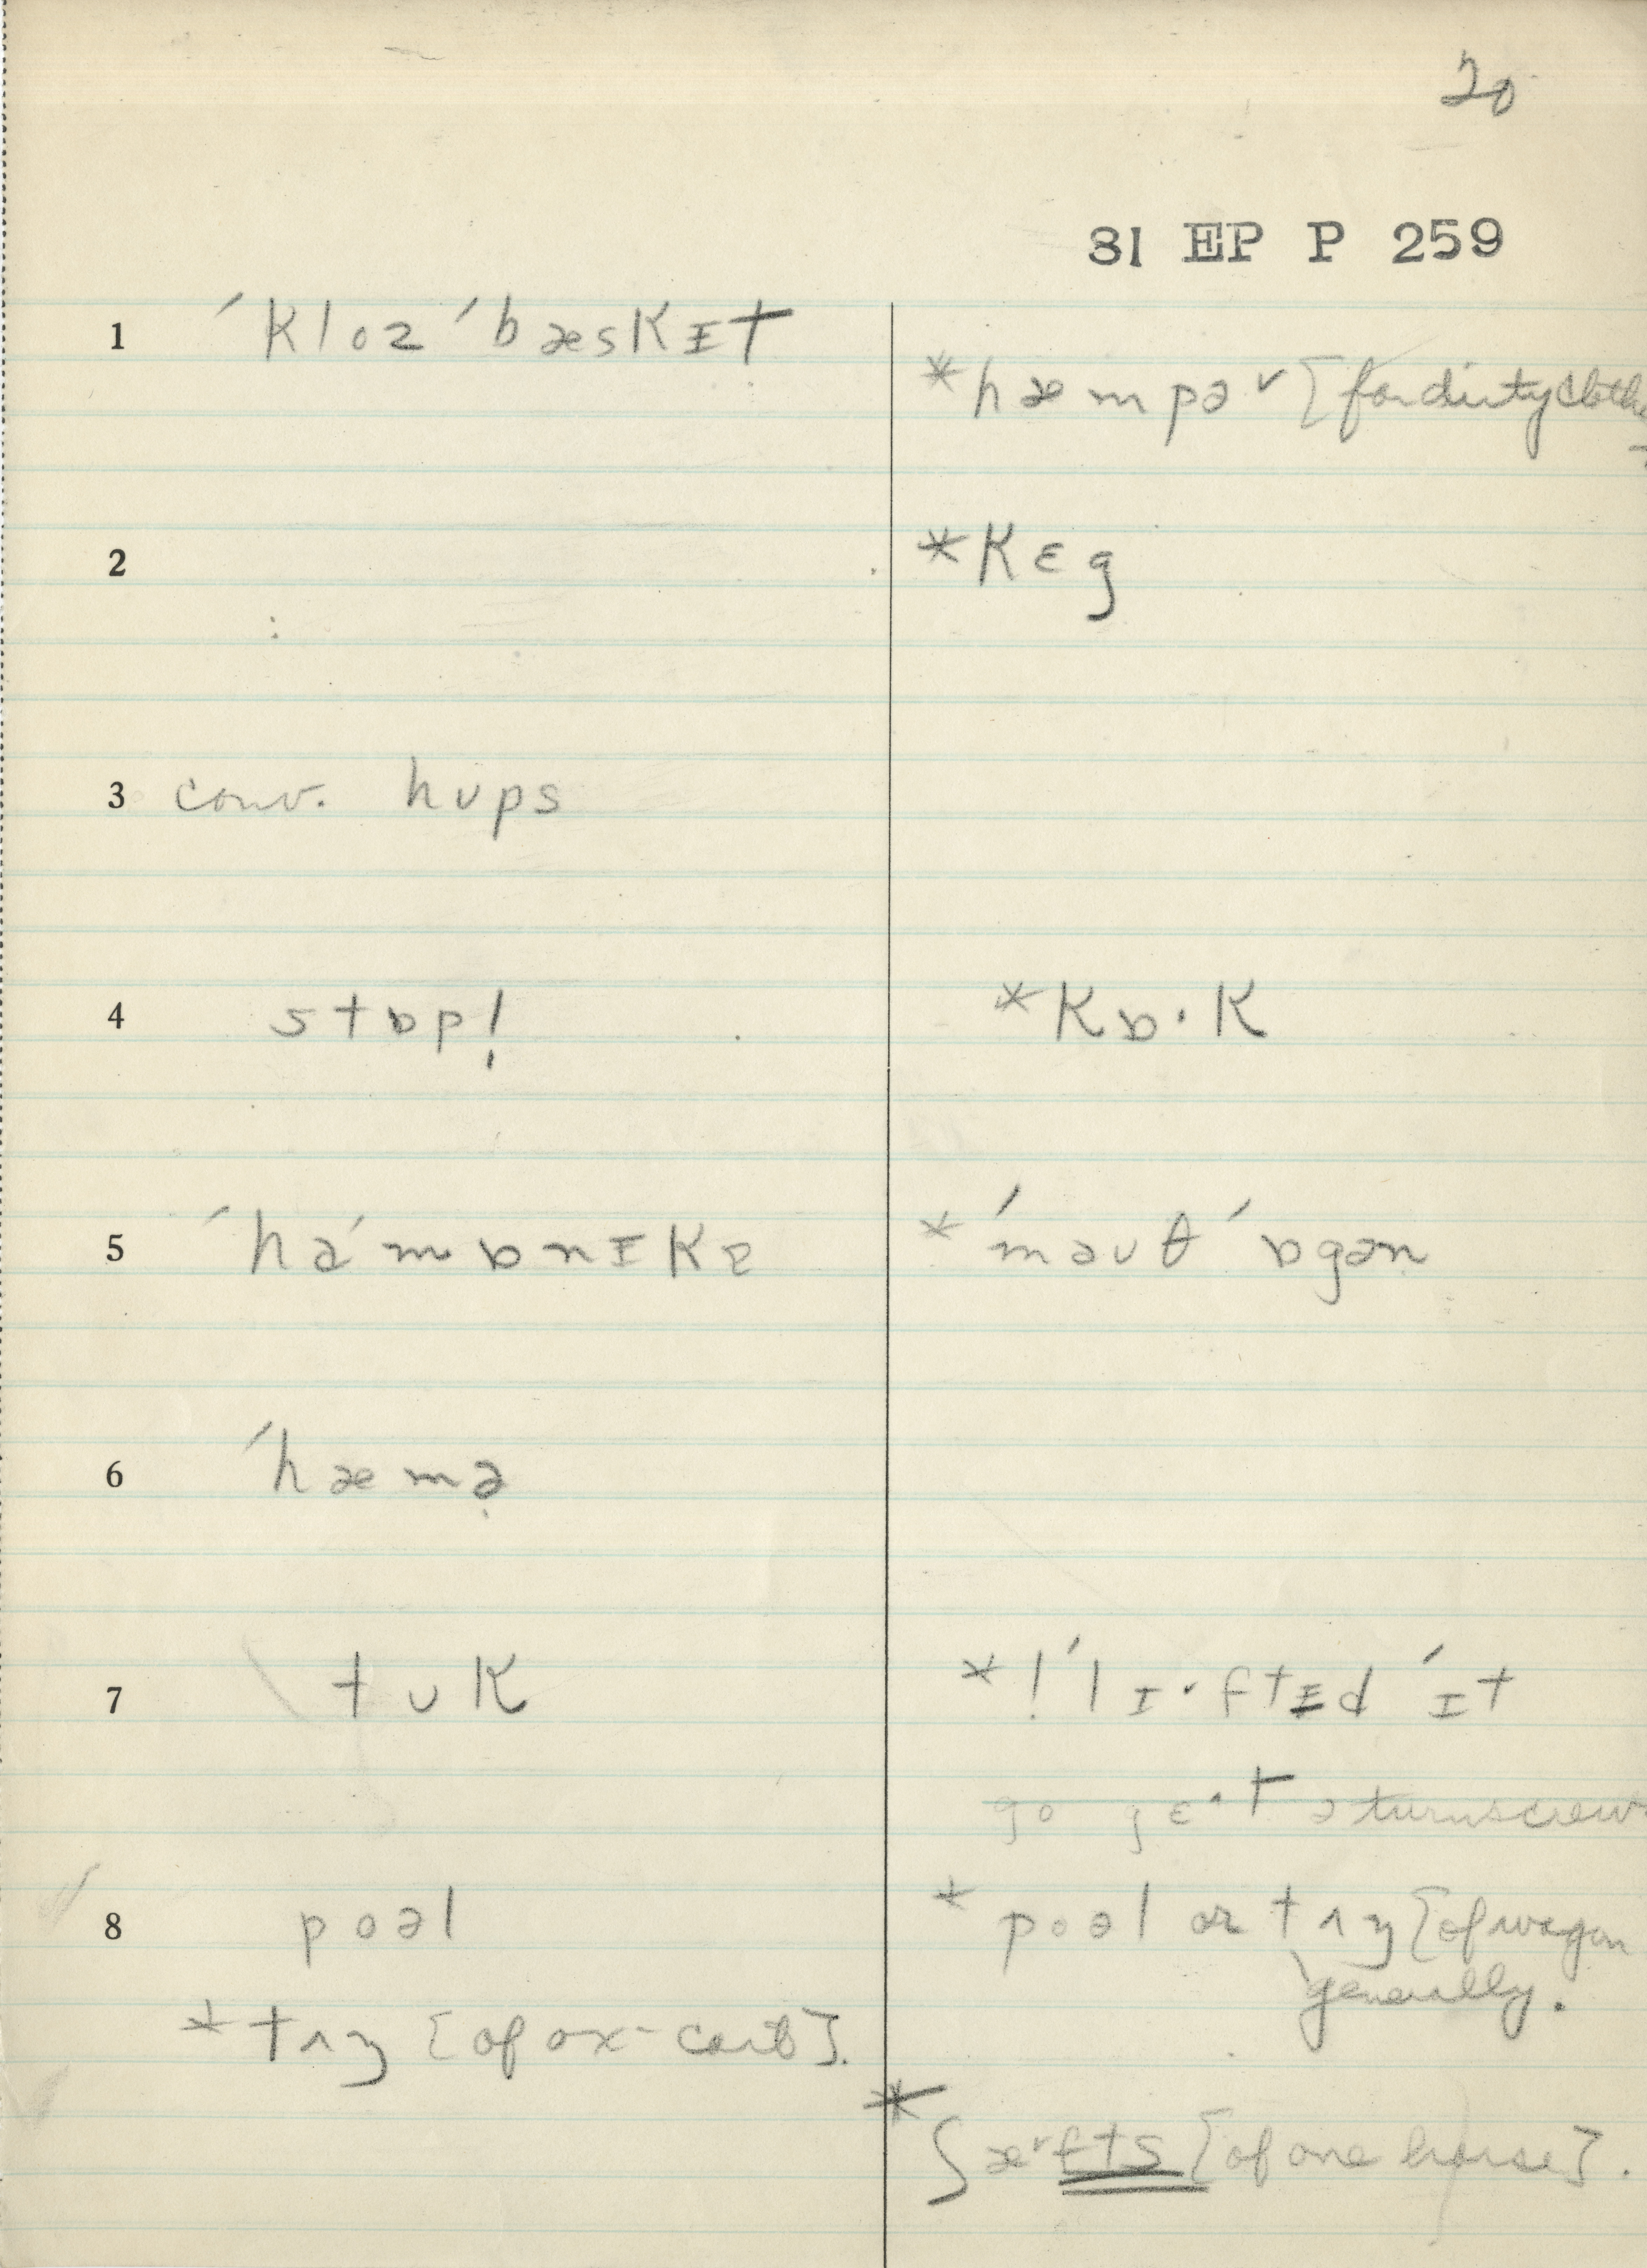 20
81 EP P 259
1 ´kloz ´bæskɪt
*hæmpə˅ [for dirty clothes
2 *kɛg
3 conv. hʊps
4 stɒp! *kɒ·k
5 ´ha´mɒnɪkə *´məʊθ ´ɒgən
6 ´hæmə̣
7 tʊk *!´lɪ·ftɪd ´ɪt
go gɛ·t ə turnscrew
8 poəl *poəl or tʌŋ [of wagon
generally.
*tʌŋ [of ox-cart].
*ʃæ˅fts [of one horse].